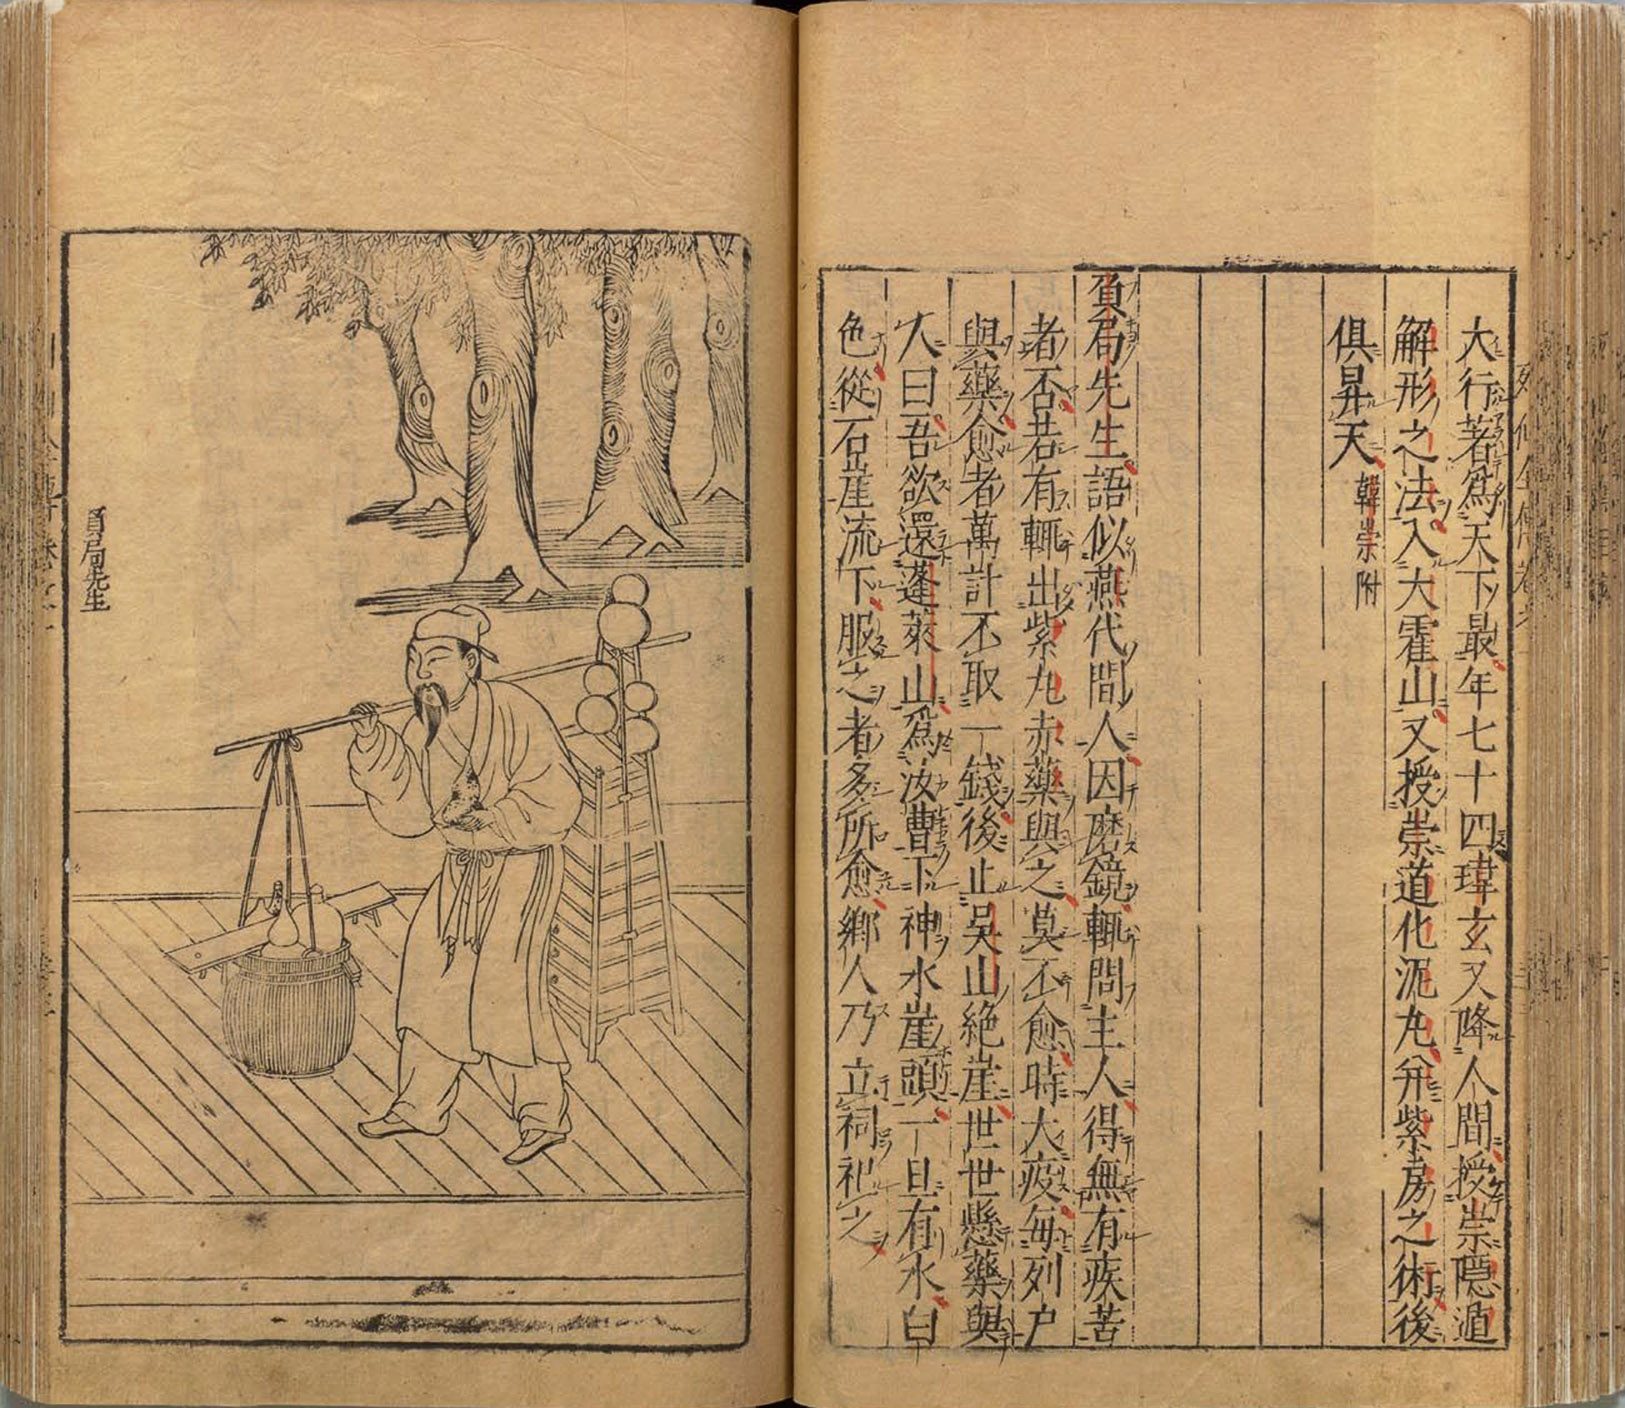 大行著爲天下最年七十四瑋玄又降人間授崇隱遁
解形之法入大霍山又授崇道化泥丸并紫房之術後
俱昇天韓崇附
負局先生語似燕代間人因磨鏡輒問主人得無有疾苦
者否若有輒出紫丸赤藥與之莫不愈時大疫每列户
與藥愈者萬計不取一錢後止吴山絶崖世世懸藥與
人曰吾欲還蓬萊山爲汝曹下神水崖頭一旦有水白
色從石崖流下服之者多所愈鄉人乃立祠祀之
負局先生